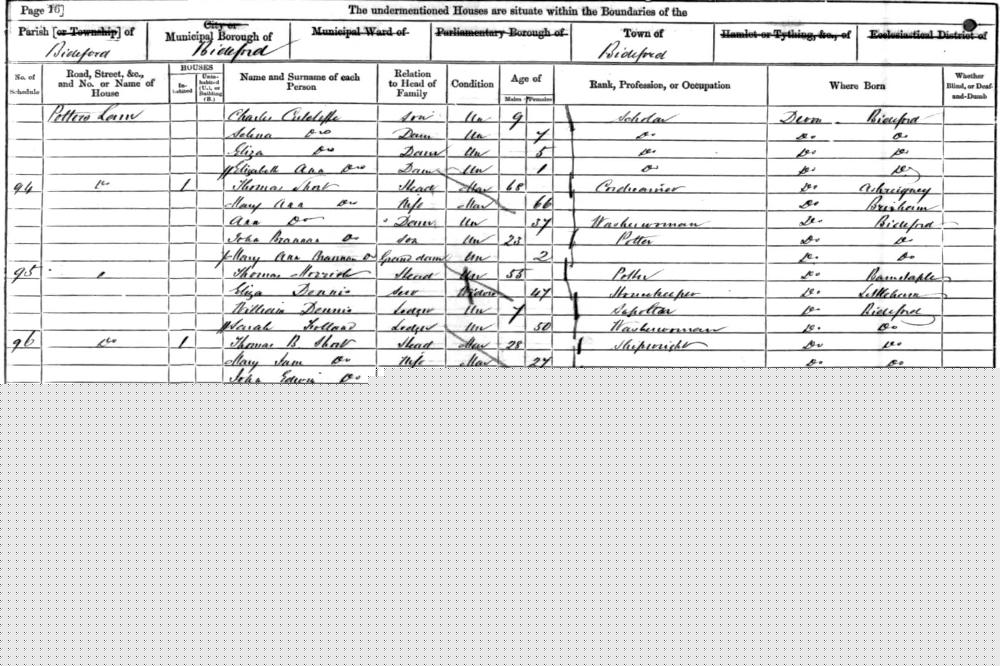 Page 16] The undermentioned Houses are situate within the Boundaries of the
Parish [or Township] of City or Municipal Borough of Municipal Ward of Parliamentary Borough of Town of Hamlet or Tything, &c., of Ecclesiastical District of
Bideford Bideford Bideford
No. of Schedule Road, Street, &c., and No. or Name of House HOUSES Inhabited Uninhabited (U.), or Building (B.) Name and Surname of each Person Relation to Head of Family Condition Age of Males Females Rank, Profession, or Occupation Where Born Whether Blind, or Deaf-and-Dumb
Potters Lane Charles son Un 9 Scholar Devon Bideford
Selena Do Daur Un 7 Do Do Do
Eliza Do Daur Un 5 Do Do Do
Elizabeth Ann Do Daur Un 1 Do Do Do
94 Do 1 Thomas Short Head Mar 68 Cordwainer Do Ashreigney
Mary Ann Do Wife Mar 66 Do Brixham
Ann Do Daur Un 37 Washerwoman Do Bideford
John Brannan Do son Un 23 Potter Do Do
Mary Ann Brannan Do Grand daur Un 2 Do Do
95 Thomas Head Un 55 Potter Do Barnstaple
Eliza Dennis Serv Widow 47 Housekeeper Do Littleham
William Dennis Lodger Un 7 Scholar Do Bideford
Sarah Lodger Un 50 Washerwoman Do Do
96 Do 1 Thomas B Short Head Mar 28 Shipwright Do Do
Mary Jane Do Wife Mar 27 Do Do
John Edwin Do